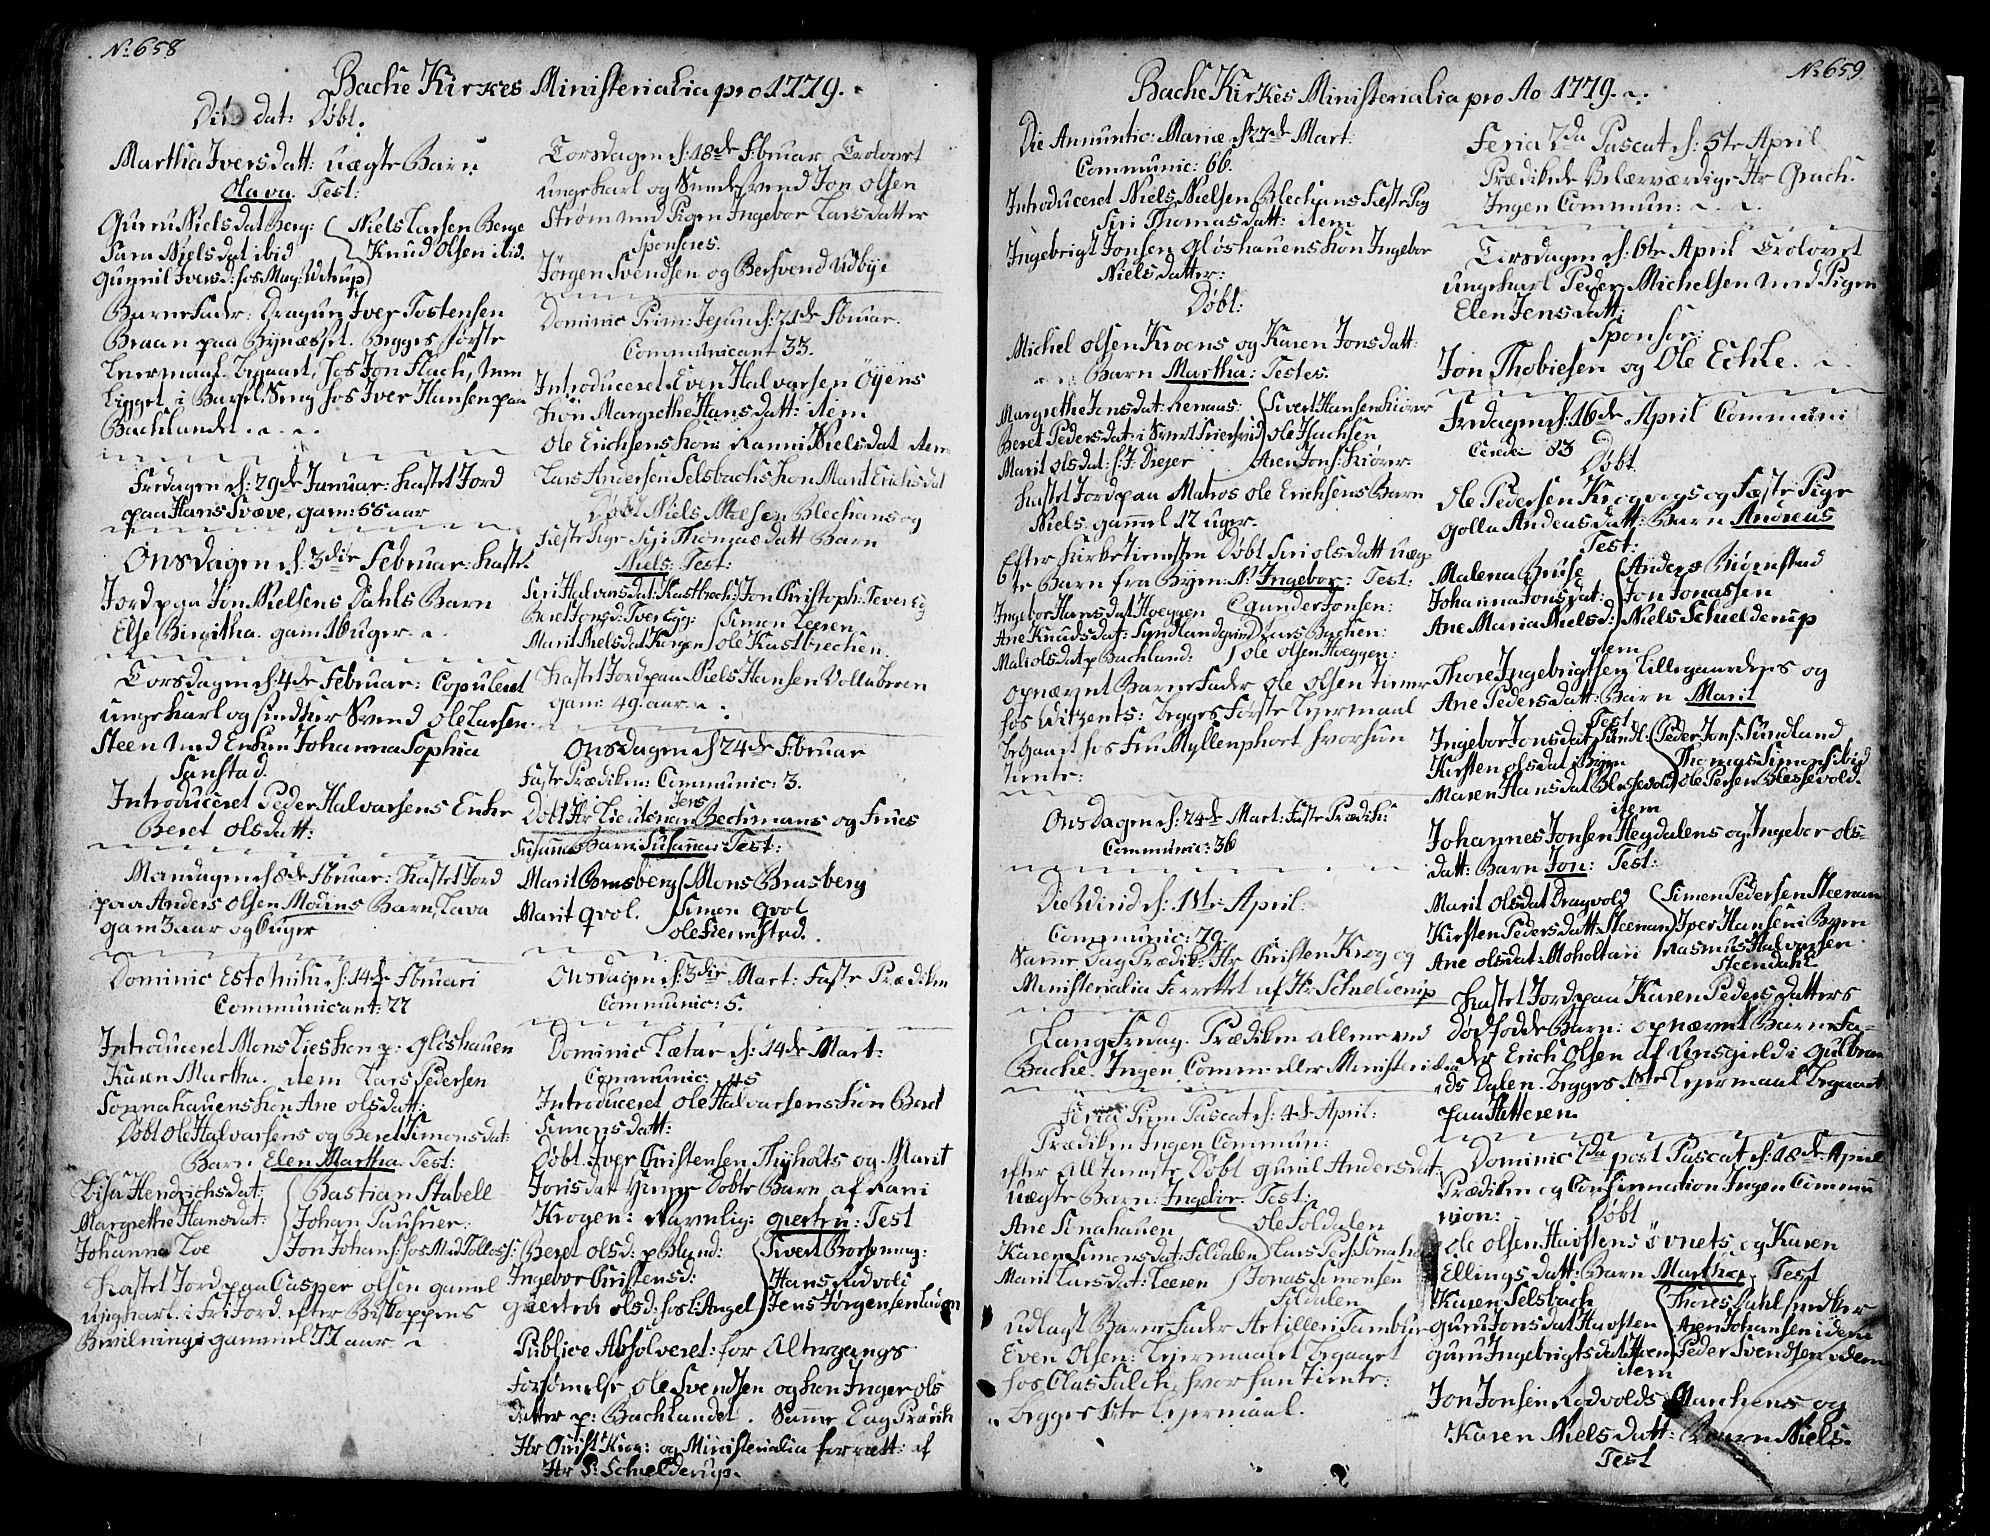 No: 658
Bache Kirkes Ministerialia pro 1779.
Dito dat: Døbt.
Martha Iversdatt: uægte Barn
Olava. Test:
Guru Nielsdat Berg: Niels Larsen Berge
Sara Nielsdat ibid Knud Olsen ibid.
Gunnil Iversd: hos Mag: Udtrup
Barnefader: Dragun Iver Tostensen
Braan paa Bynæsset. Begges første
Leiermaal. begaaet, hos Jon Flach,
Ligget i Barsel Seng hos Iver Hansen paa
Bachlandet.
Fredagen d: 29de Januar: kastet Jord
paa Hans Svæve, gam: 55 aar
Onsdagen d: 3die Februar: kastet
Jord paa Jon Nielsens Dahls Barn
Else Birgitha. gam: uger
Torsdagen d: 4de Februar: Copuleret
ungekarl og Svend Ole Larsen
Steen med Enken Johanna Sophia
Introduceret Peder Halvarsens Enke
Beret Olsdatt:
Mandagen d: 8de Februar: kastet Jord
paa Anders Olsen Moens Barn, Lava
gam 3 aar og uger
Dominic Estomihi d: 14de Februari
Communicant: 22
Introduceret Mons Lies kon p: Gløshauen
Karen Martha. item Lars Pedersen
Sonnahauens kon Ane Olsdatt:
Døbt Ole Halvarsens og Beret Simonsdat:
Barn Elen Martha. Test:
Lisa Hendrichsdat: Bastian Stabell
Margrethe Hansdat: Johan Pausner:
Johanna Loe Jon Johans: hos Mad Collos:
Kastet Jord paa Casper Olsen gamel
ungkarl. i Fri Jord efter Biskoppens
Bevilning: gammel 77 aar
Torsdagen d: 18de Februar Trolovet
ungekarl og Svend Jon Olsen
Strøm med Pigen Ingebor Larsdatter
Sponsores.
Jørgen Svendsen og Bersvend Udbye
Dominic Prim: Jejun d: 21de Februar.
Communicant 33.
Introduceret Even Halvarsen Øyens
kon Margrethe Hansdatt: item
Ole Erichsens kon: Ranni Nielsdat item
Lars Andersen Selsbachs kon Marit Erichsdat
Døbt Niels Nielsen Blechans og
Fæste Pige Siri Thomasdatt Barn
Niels Test:
Siri Halvarsdat: Kastbrech: Jon Christoph: Tveregg
Beret Jonsd: Tveregg: Simon Leeren
Marit Nielsdat Krogen Ole Kastbrechen
Kastet Jord paa Niels Hansen Volluberen
gam: 49 aar
Onsdagen d 24de Februar
Faste Prædiken: Communic: 3.
Døbt Hr Lieutenan Jens Bechmans og Frues
Susannes Barn: Susanna Test:
Marit Bonsberg Mons Brusberg
Marit Qvol. Simon Qvol
Ole Heemsted.
Onsdagen d: 3die Mart: Faste Prædiken
Communic: 5.
Dominic Lætar d: 14de Mart:
Communic: 45
Introduceret Ole Halvarsens kon Beret
Simensdatt:
Døbt Iver Christensen Thyholts og Marit
Jonsdat hiemme Døbte Barn af Rani
Krogen: Navnlig: Giertru: Test
Beret Olsd: p Bland: Sivert Brosemag:
Ingebor Christensd: Hans Rodvold
Giertru Olsd: hos L: Angel Jens Jørgensen
Publice Absolveret: for Altergangs
Forsømelse Ole Svendsen og kon Inger Ols
datter p: Bachlandet. Samme Dag Prædik
Hr Christ: Krog: og Ministerialia forrætt: af
Hr P: Schielderup.
No: 659.
Bache Kirkes Ministerialia pro Ao 1779.
Die Annuntic: Mariæ d: 22de Mart
Communic: 66.
Introduceret Niels Nielsen Blechans Fæste Pig
Siri Thomasdatt: item
Ingebrigt Jonsen Gløshauens kon Ingebor
Nielsdatter:
Døbt:
Michel Olsen Kroens og Karen Jonsdatt:
Barn Martha: Testes.
Margrethe Jonsdat: Renaas: Sivert Hansen
Beret Pedersdat: i Ole Isachsen
Marit Olsdat: Dreier Aren Jons:
Kastet Jord paa Matros Ole Erichsens Barn
Niels. gammel 12 uger.
Efter Kirketienesten Døbt Siri Olsdatt uæg
te Barn fra Byen: N: Ingebor: Test:
Ingebor Hansdat Høeggen Gunder Jonsen:
Ane Knudsdat: Lars Bachen:
Mali Olsdat p Bachland: Ole Olsen Høeggen:
Opnævnt Barnefader Ole Olsen tiener
hos Witzents: begges Første Leiermaal
begaaet hos Fru Myllenphort hvor hun
tiente:
Onsdagen d: 24de Mart: Faste Prædik:
Communic: 36
Die Virid d: 1ste April:
Communic: 79
Same Dag Prædik: Hr Christen Krog og
Ministerialia Forrettet af Hr Schielderup
Langfredag. Prædiken allene ved
Bache Ingen Comm: eller Ministerialia
Feria Prim Pascat d: 4de April:
Prædiken Ingen Commun:
efter All tieneste Døbt Gunil Andersdat:
uægte Barn: Ingebor. Test:
Ane Sonahauen Ole Soldalen
Karen Simensdat: Soldalen Lars Pers: Sonahau
Marit Larsdat: Leeren Jonas Simonsen
Soldalen
Udlagt Barnefader Artilleri Tambur
Even Olsen: Leiermaalet begaaet
hos Clas Falch, hvor hun tiente:
begges 1ste Leiermaal.
Feria 2da Pascat d: 5te April
Prædikede Velærværdige Hr
Ingen Commun:
Torsdagen d: 6te April Trolovet
ungekarl Peder Michelsen med Pigen
Elen Jensdatt:
Sponsor:
Jon Thobiesen og Ole Echle.
Fredagen d: 16de April Communi
Cerede: 83
Døbt
Ole Pedersen Krogvogs og Fæste Pige
Golla Andersdatt: Barn Andreas
Test:
Malena Bruse Anders Biørnstad
Johanna Jonsdat: Jon Jonassen
Ane Maria Nielsd: Niels Schielderup
item
Thore Ingebrigtsen Lillegaardens og
Ane Pedersdatt: Barn Marit
Test.
Ingebor Jonsdat Sundl: Peder Jons: Sundland
Kirsten Olsdat i Byen Thomas Simens: ibid
Maren Hansdat Blessevold: Ole Persen Blessevold.
item
Johannes Jonsen Heydalens og Ingebor Ols-
datt: Barn Jon: Test:
Marit Olsdat Dragvold Simen Pedersen Steenan
Kirsten Pedersdatt: Steenan Iver Hansen i Byen
Ane Olsdat: Moholtan Rasmus Halvorsen.
Steendahl
Kastet Jord paa Karen Pedersdatters
Dødfødde Barn: opnævnt Barnefa-
der Erich Olsen af Ringsgield i Gulbran
ds Dalen. begges 1ste Leiermaal begaaet
paa Hetteren
Dominic 2da post Pascat d: 18de April
Prædiken og Confirmation Ingen Commu
nion: Døbt
Ole Olsen Havstens Øvnets og Karen
Ellingsdatt: Barn Martha. Test
Karen Selsbach Thores Dahl snedker
Guru Jonsdat Havsten Aren Johansen idem
Guru Ingebrigtsdat: Peder Svendsen idem
item
Jon Jonsen Rodvolds Marchens og
Karen Nielsdatt: Barn Niels.
Test